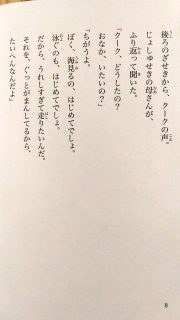 後ろのざせきから、クークの声。
じょしゅせきの母さんが、
ふり返って聞いた。
「クーク、どうしたの？
おなか、いたいの？」
「ちがうよ。
ぼく、海見るの、はじめてでしょ。
泳ぐのも、はじめてでしょ。
だから、うれしすぎて走りたいんだ。
それを、ぐっとがまんしてるから、
たいへんなんだよ」
8